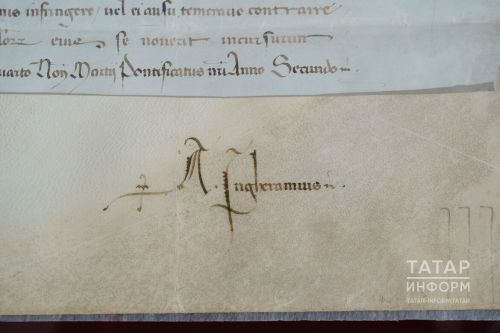 nus infringere, vel ei ausu temerario contraire
eius, se noverit incursurum
uarto Non̄ Martij Pontificatus nr̄i Anno Secundo
A.
ТАТАР
ИНФОРМ
TATAR-INFORM.TATAR